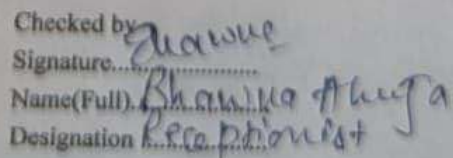 Checked by
Signature.................... Bhawna
Name(Full). Bhawna Ahuja
Designation Receptionist